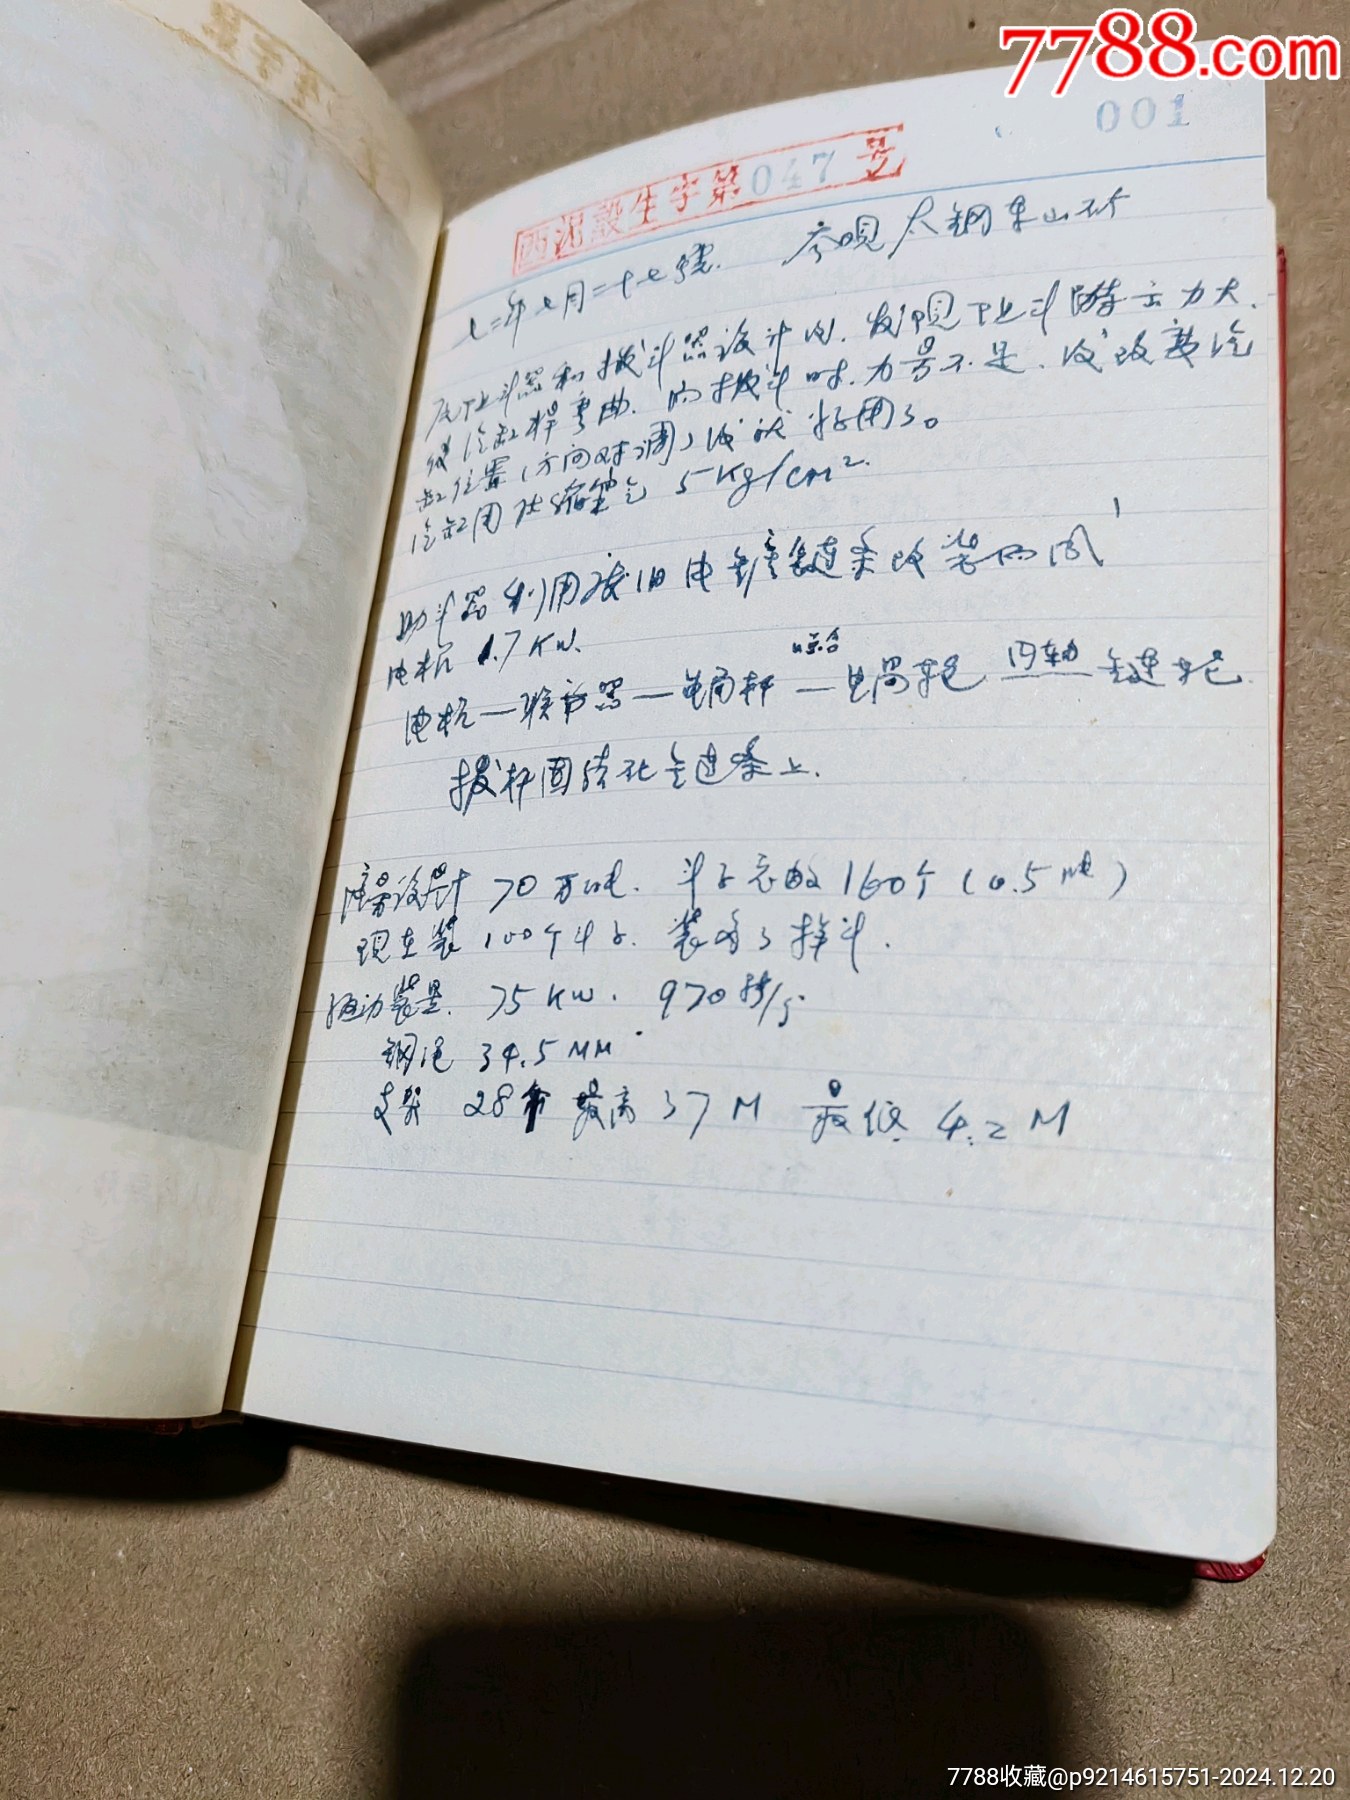 7788.com
001
西泥設生字第047号
七二年七月二十七號. 参观太钢东山矿
器和拨斗器设计时.发现上斗 力大.
汽缸杆弯曲.的拨斗时.力量不足.后改装汽
缸位置(方向对调)后就好用了。
汽缸用压缩空气 5kg/cm².
助斗器利用废旧电 链条改装而成
电机 1.7KW.
电机—联 器—蜗杆 啮合 — 蜗轮 同轴 链轮
拨杆固结在链条上.
原设计 70万吨. 斗子总数160个(0.5吨)
现在装100个斗子. 装有 斗.
拖动装置. 75KW. 970转/
钢绳 34.5MM
支架 28个 最高 37M 最低 4.2M
7788收藏@p9214615751-2024.12.20